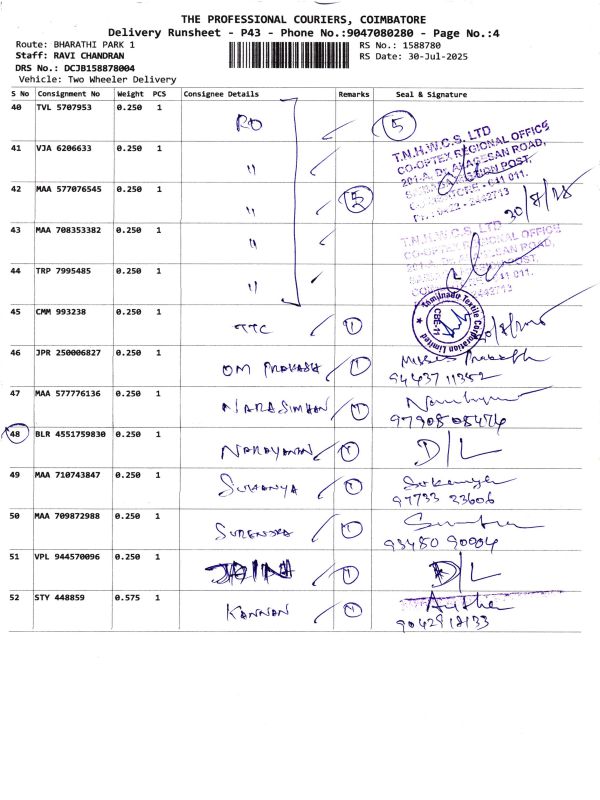 THE PROFESSIONAL COURIERS, COIMBATORE
Delivery Runsheet - P43 - Phone No.:9047080280 - Page No.:4
Route: BHARATHI PARK 1 RS No.: 1588780
Staff: RAVI CHANDRAN RS Date: 30-Jul-2025
DRS No.: DCJB158878004
Vehicle: Two Wheeler Delivery
S No Consignment No Weight PCS Consignee Details Remarks Seal & Signature
40 TVL 5707953 0.250 1 RO 5
T.N.H.W.C.S. LTD
CO-OPTEX REGIONAL OFFICE
41 VJA 6206633 0.250 1 "
42 MAA 577076545 0.250 1 " 5
43 MAA 708353382 0.250 1 "
T.N.H.W.C.S. LTD
44 TRP 7995485 0.250 1 "
45 CMM 993238 0.250 1 TTC 1
Tamilnadu Textile Corporation Limited
CBE-11
46 JPR 250006827 0.250 1 OM PRAKASH 1
94437 11352
47 MAA 577776136 0.250 1 NARASIMHAN 1
9790808474
48 BLR 4551759830 0.250 1 NARAYANAN 1 D/L
49 MAA 710743847 0.250 1 SUKANYA 1 Sukanya
97733 23606
50 MAA 709872988 0.250 1 SURENDRA 1
93480 90904
51 VPL 944570096 0.250 1 JAIN 1 D/L
52 STY 448859 0.575 1 KANNAN 1
9042918133